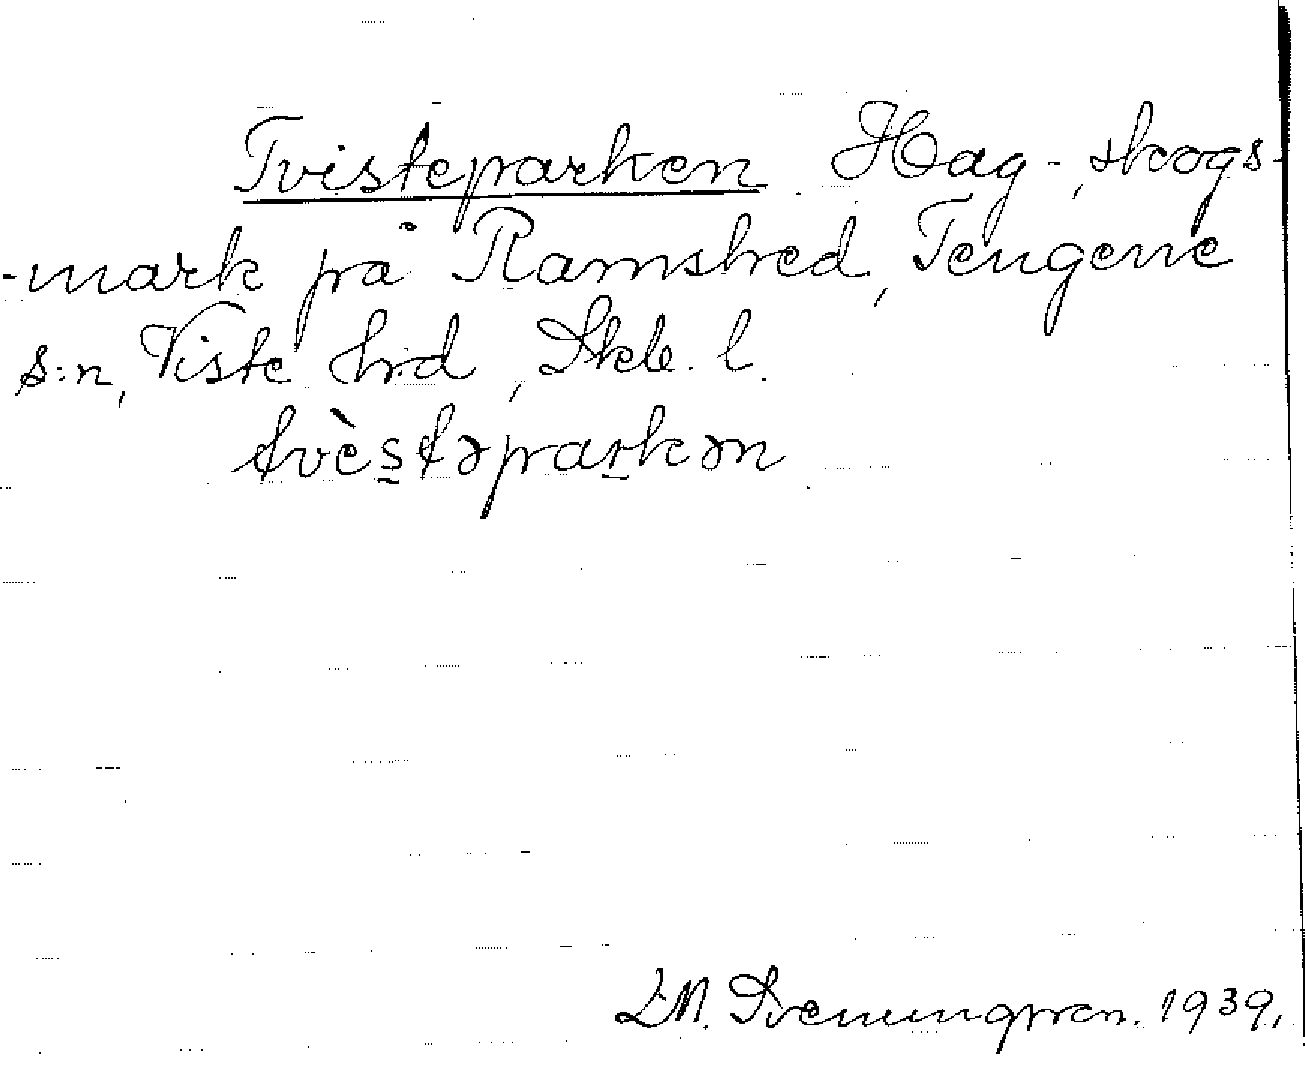 Tvisteparken Hag-, skogs-
-mark på Ramshed, Tengene
s:n, Viste hrd, Skb. l.
tvèstəparkən
Svenungsson. 1939.